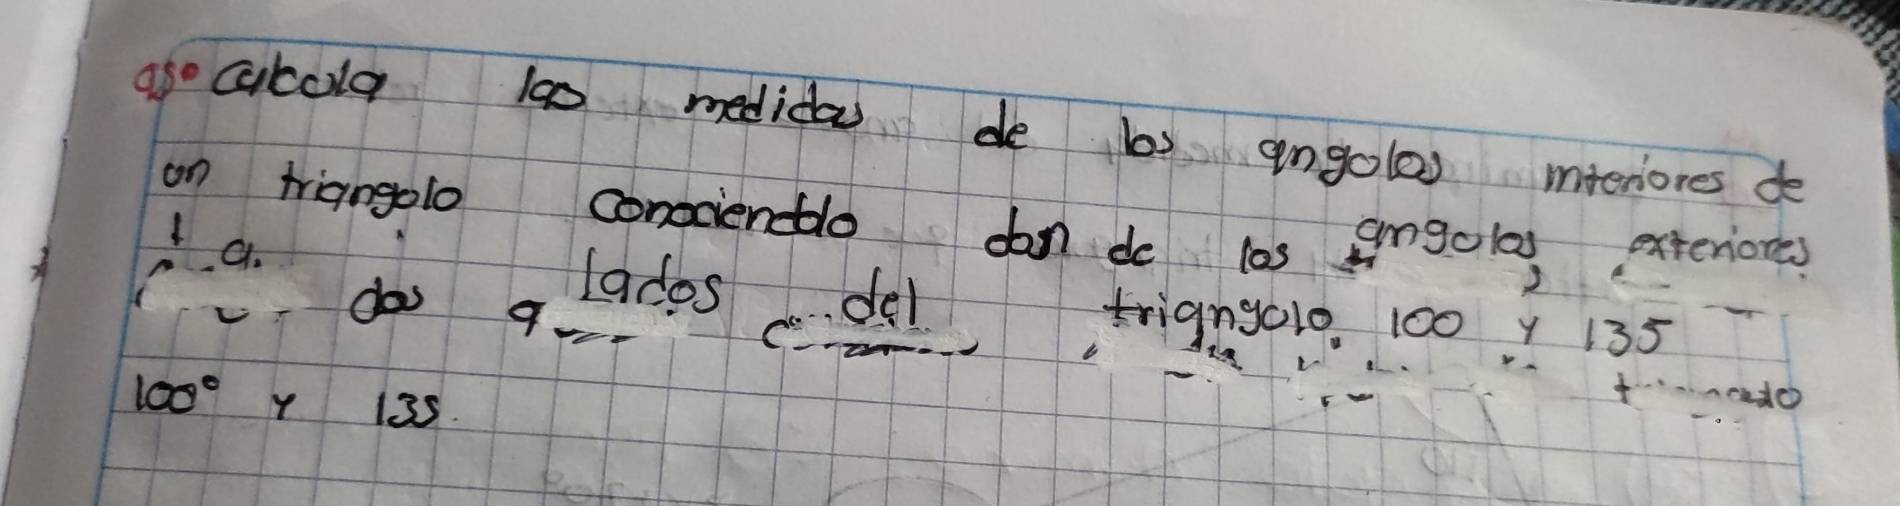 95° Calcula las medidas de los angolos interiores de
un triangolo conociendolo dan de los angolos exteriores
a. dos lados del triangolo. 100 y 135
100° y 135.